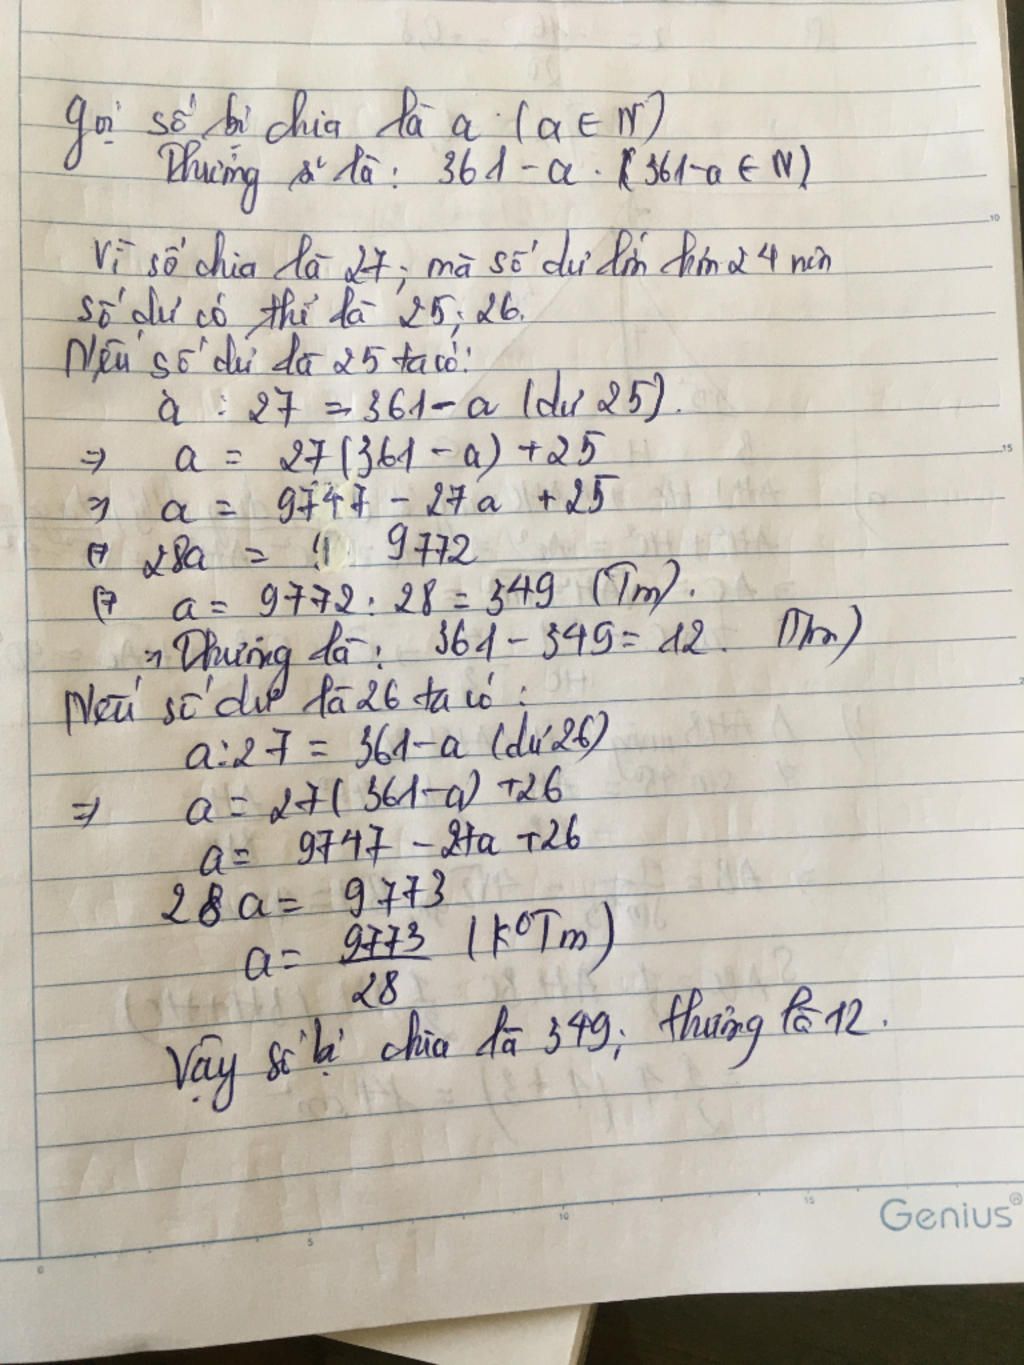 Gọi số bị chia là a. (a ∈ N)
Thương số là: 361 - a. (361-a ∈ N)
10
Vì số chia là 27; mà số dư lớn hơn 24 nên
số dư có thể là 25; 26.
Nếu số dư là 25 ta có:
a : 27 = 361 - a (dư 25).
15
⇒ a = 27(361 - a) + 25
⇒ a = 9747 - 27a + 25
⇔ 28a = 9772
⇔ a = 9772 : 28 = 349 (Tm).
⇒ Thương là: 361 - 349 = 12. (Tm)
Nếu số dư là 26 ta có:
a:27 = 361-a (dư 26)
⇒ a = 27(361-a) +26
a = 9747 - 27a +26
28a = 9773
a = 9773/28 (k⁰Tm)
Vậy số bị chia là 349; thương là 12.
Genius®
0 5 10 15